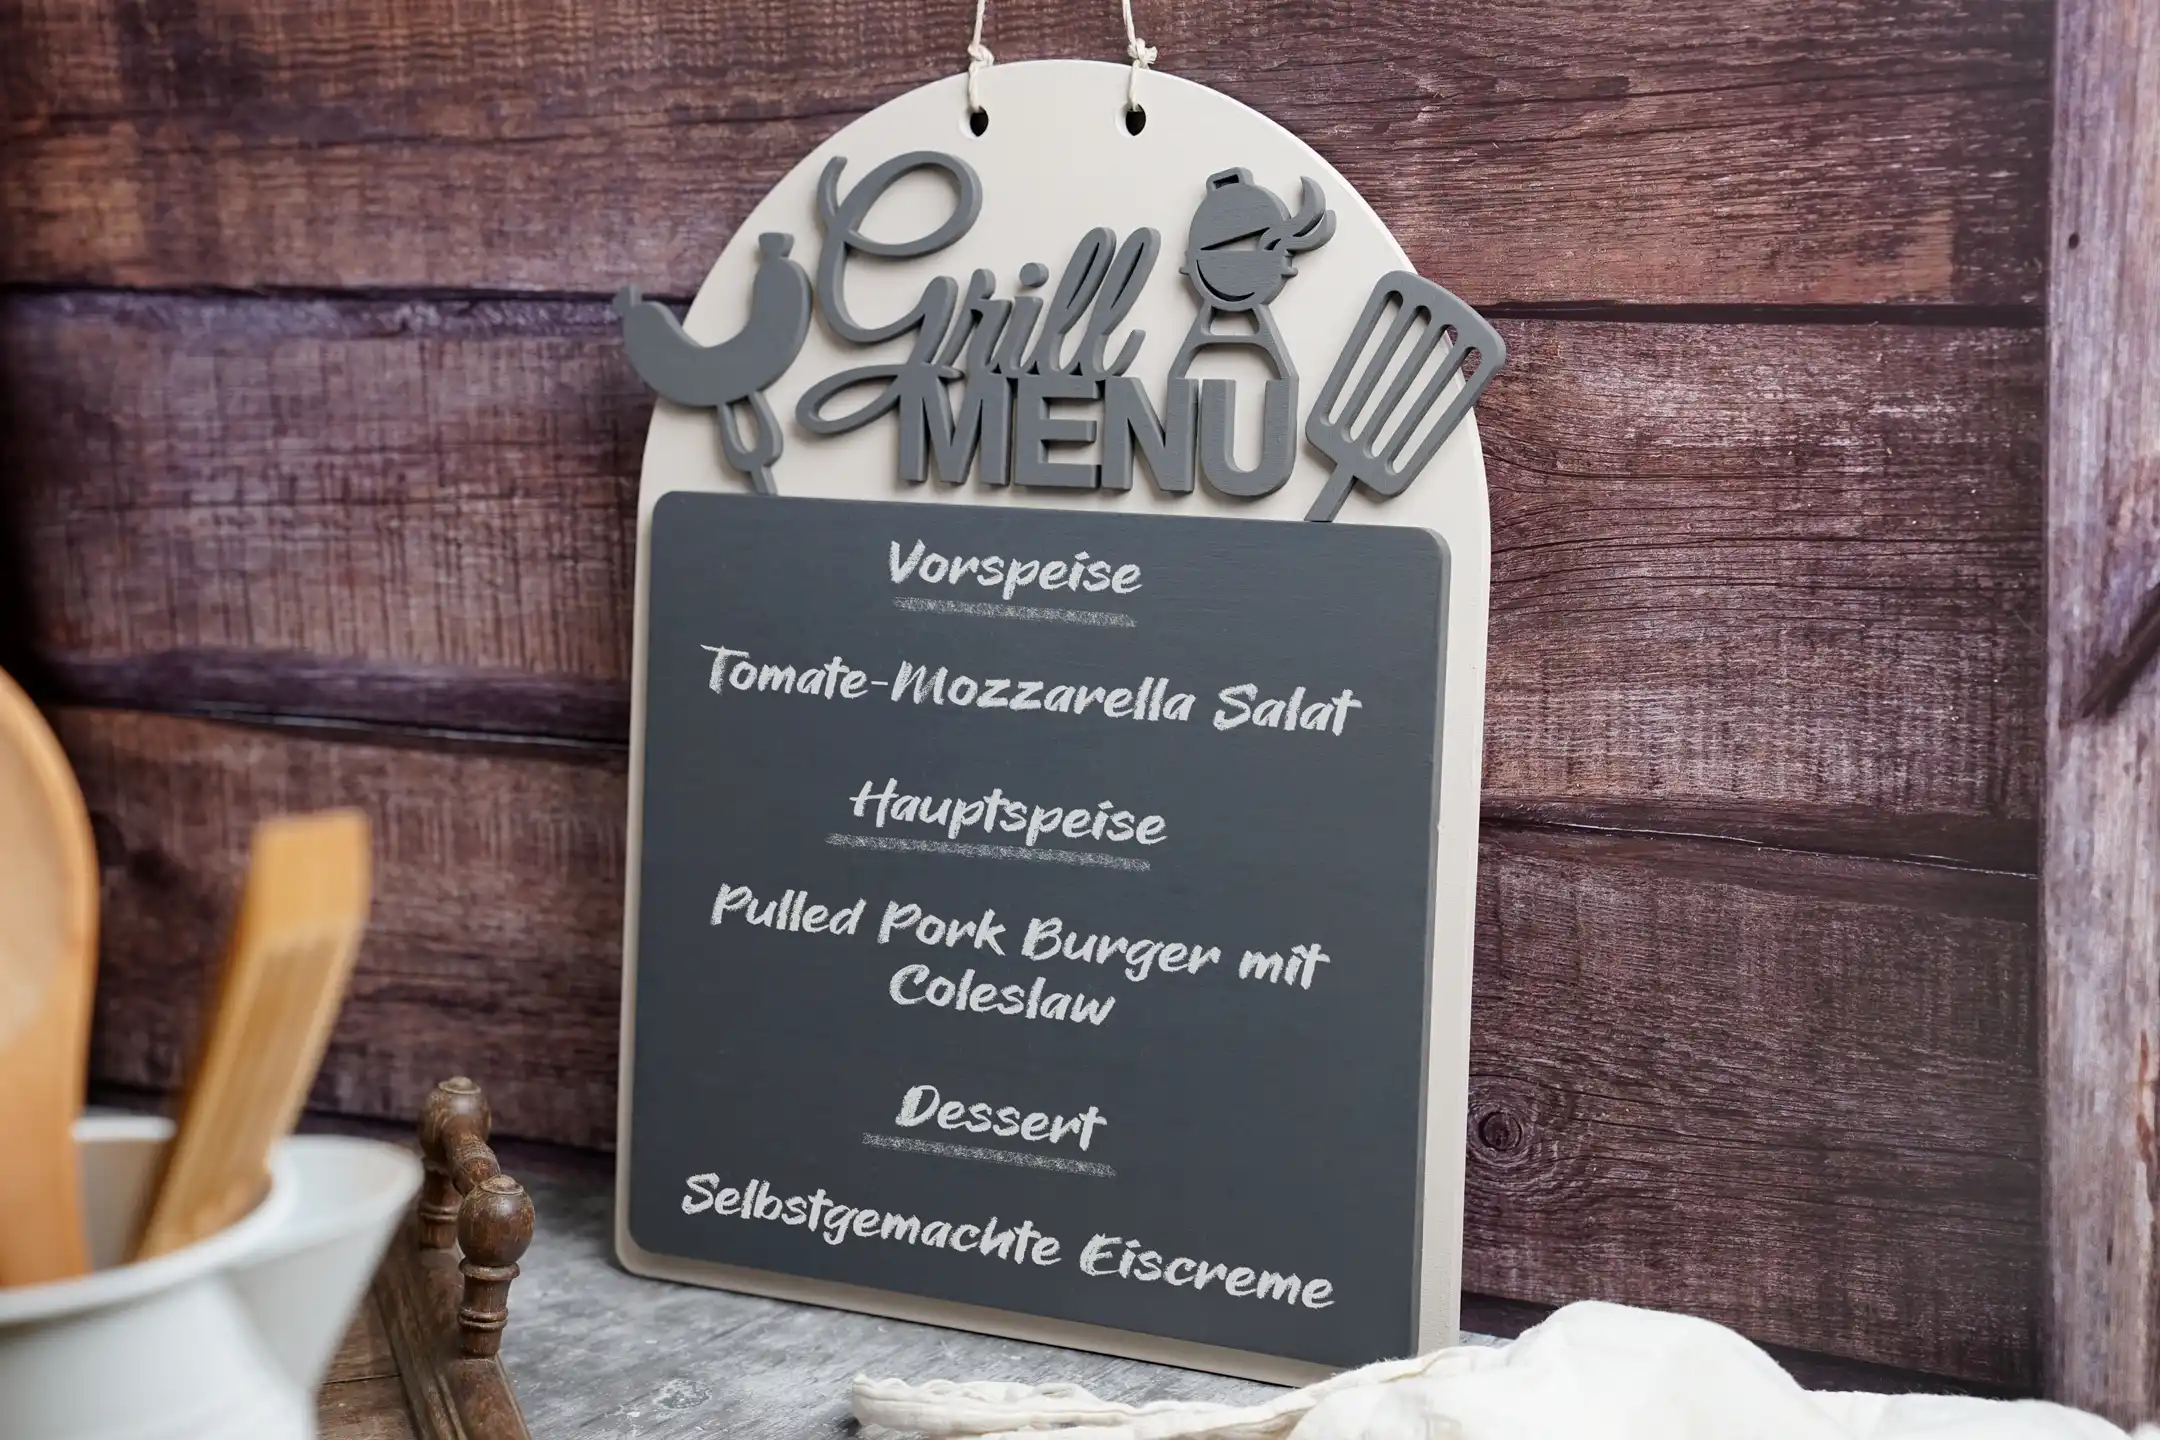 Grill
MENU
Vorspeise
Tomate-Mozzarella Salat
Hauptspeise
Pulled Pork Burger mit
Coleslaw
Dessert
Selbstgemachte Eiscreme